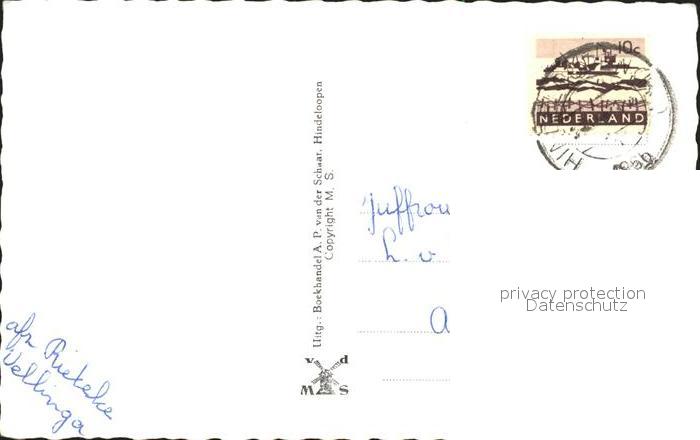 10c
NEDERLAND
Uitg.: Boekhandel A. P. van der Schaar, Hindeloopen
Copyright M. S.
v d
M S
Juffrou
h. v
A
privacy protection
Datenschutz
afz Rieteke
Wellinga